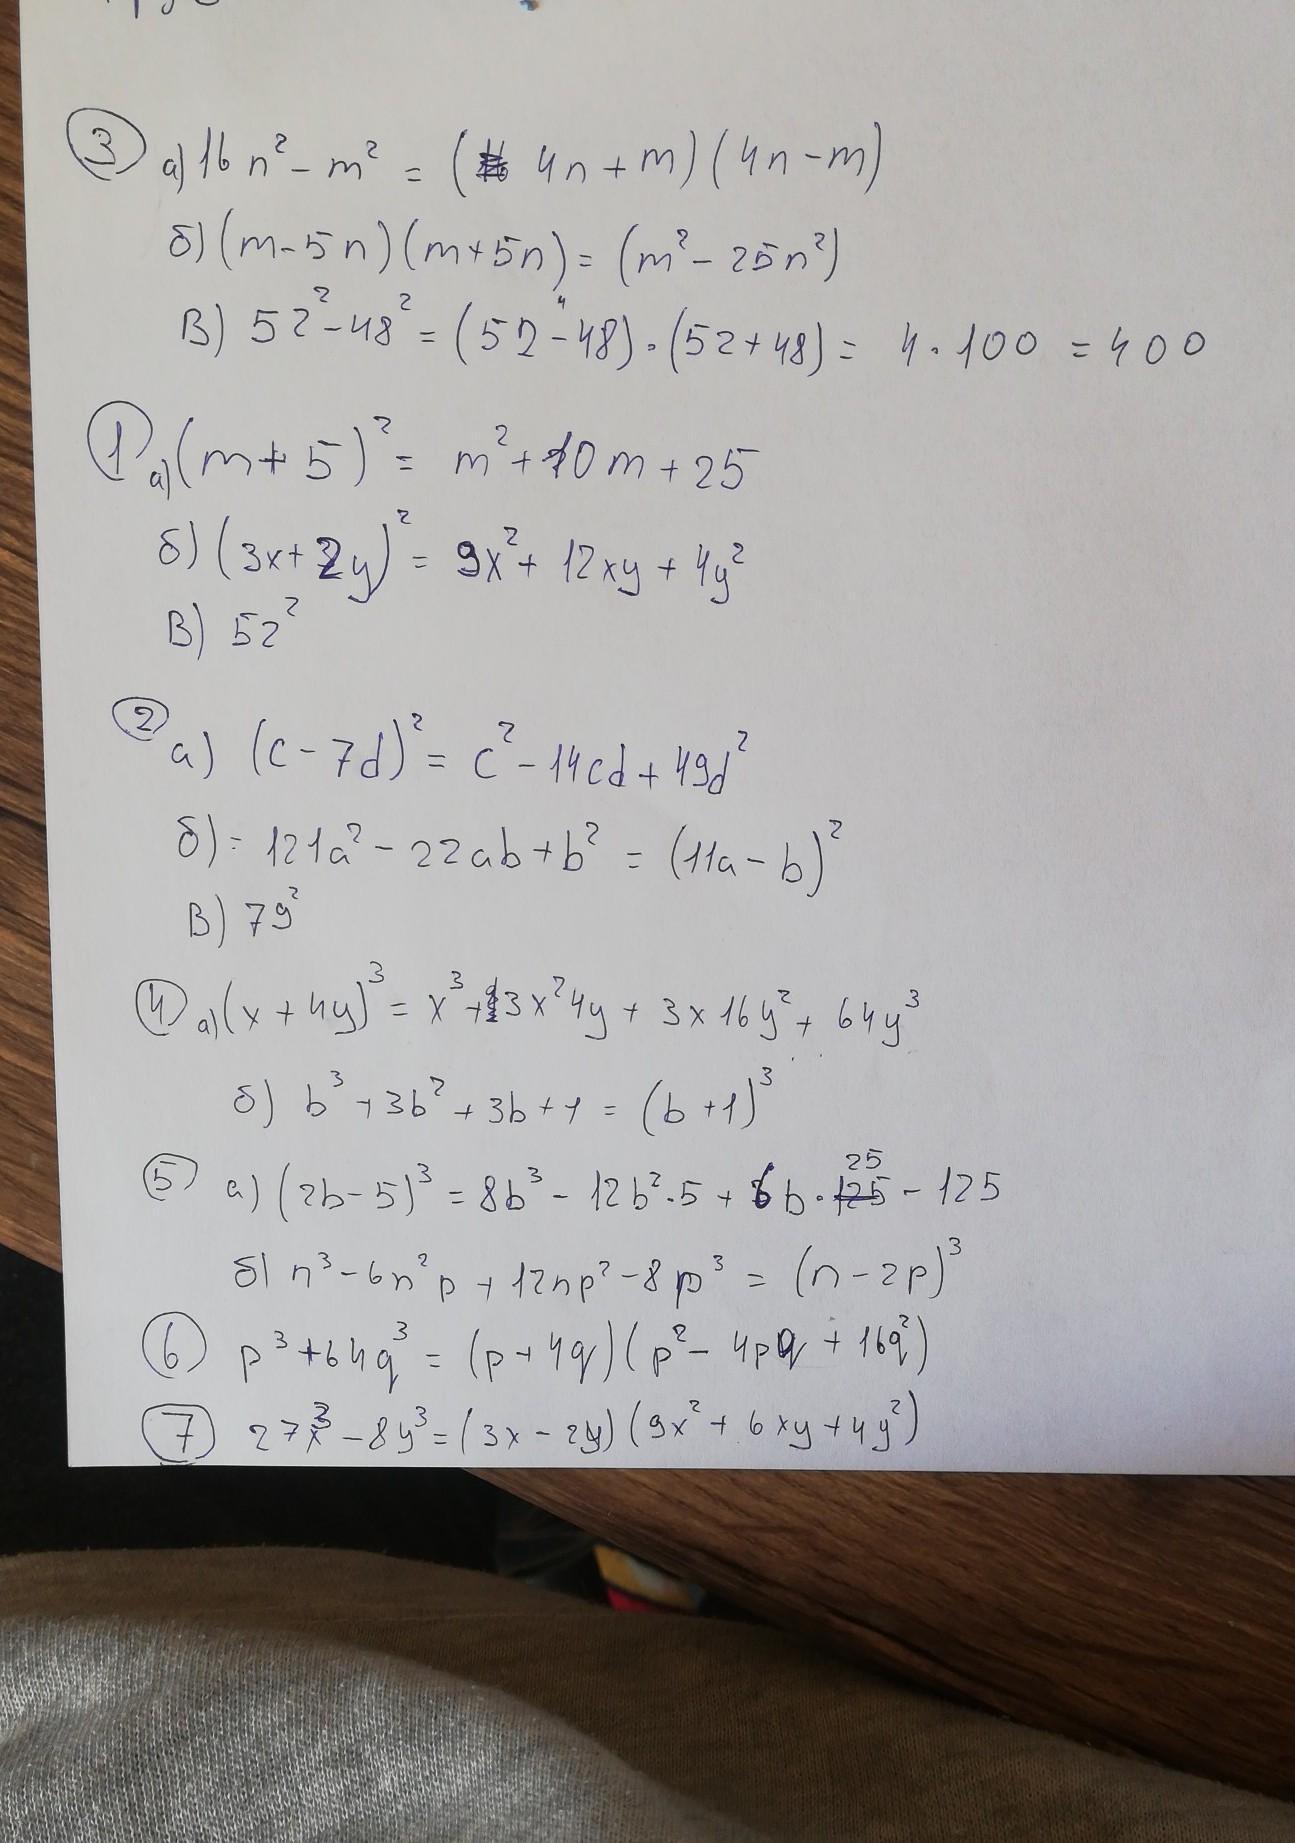 ③ а) 16n² - m² = (4n + m)(4n - m)
б) (m - 5n)(m + 5n) = (m² - 25n²)
В) 52² - 48² = (52 - 48) · (52 + 48) = 4 · 100 = 400
① а) (m + 5)² = m² + 10m + 25
б) (3x + 2y)² = 9x² + 12xy + 4y²
В) 52²
② а) (c - 7d)² = c² - 14cd + 49d²
б) = 121a² - 22ab + b² = (11a - b)²
В) 79²
④ а) (x + 4y)³ = x³ + 3x²4y + 3x16y² + 64y³
б) b³ + 3b² + 3b + 1 = (b + 1)³
⑤ а) (2b - 5)³ = 8b³ - 12b² · 5 + 6b · 25 - 125
б) n³ - 6n²p + 12np² - 8p³ = (n - 2p)³
⑥ p³ + 64q³ = (p + 4q)(p² - 4pq + 16q²)
⑦ 27x³ - 8y³ = (3x - 2y)(9x² + 6xy + 4y²)